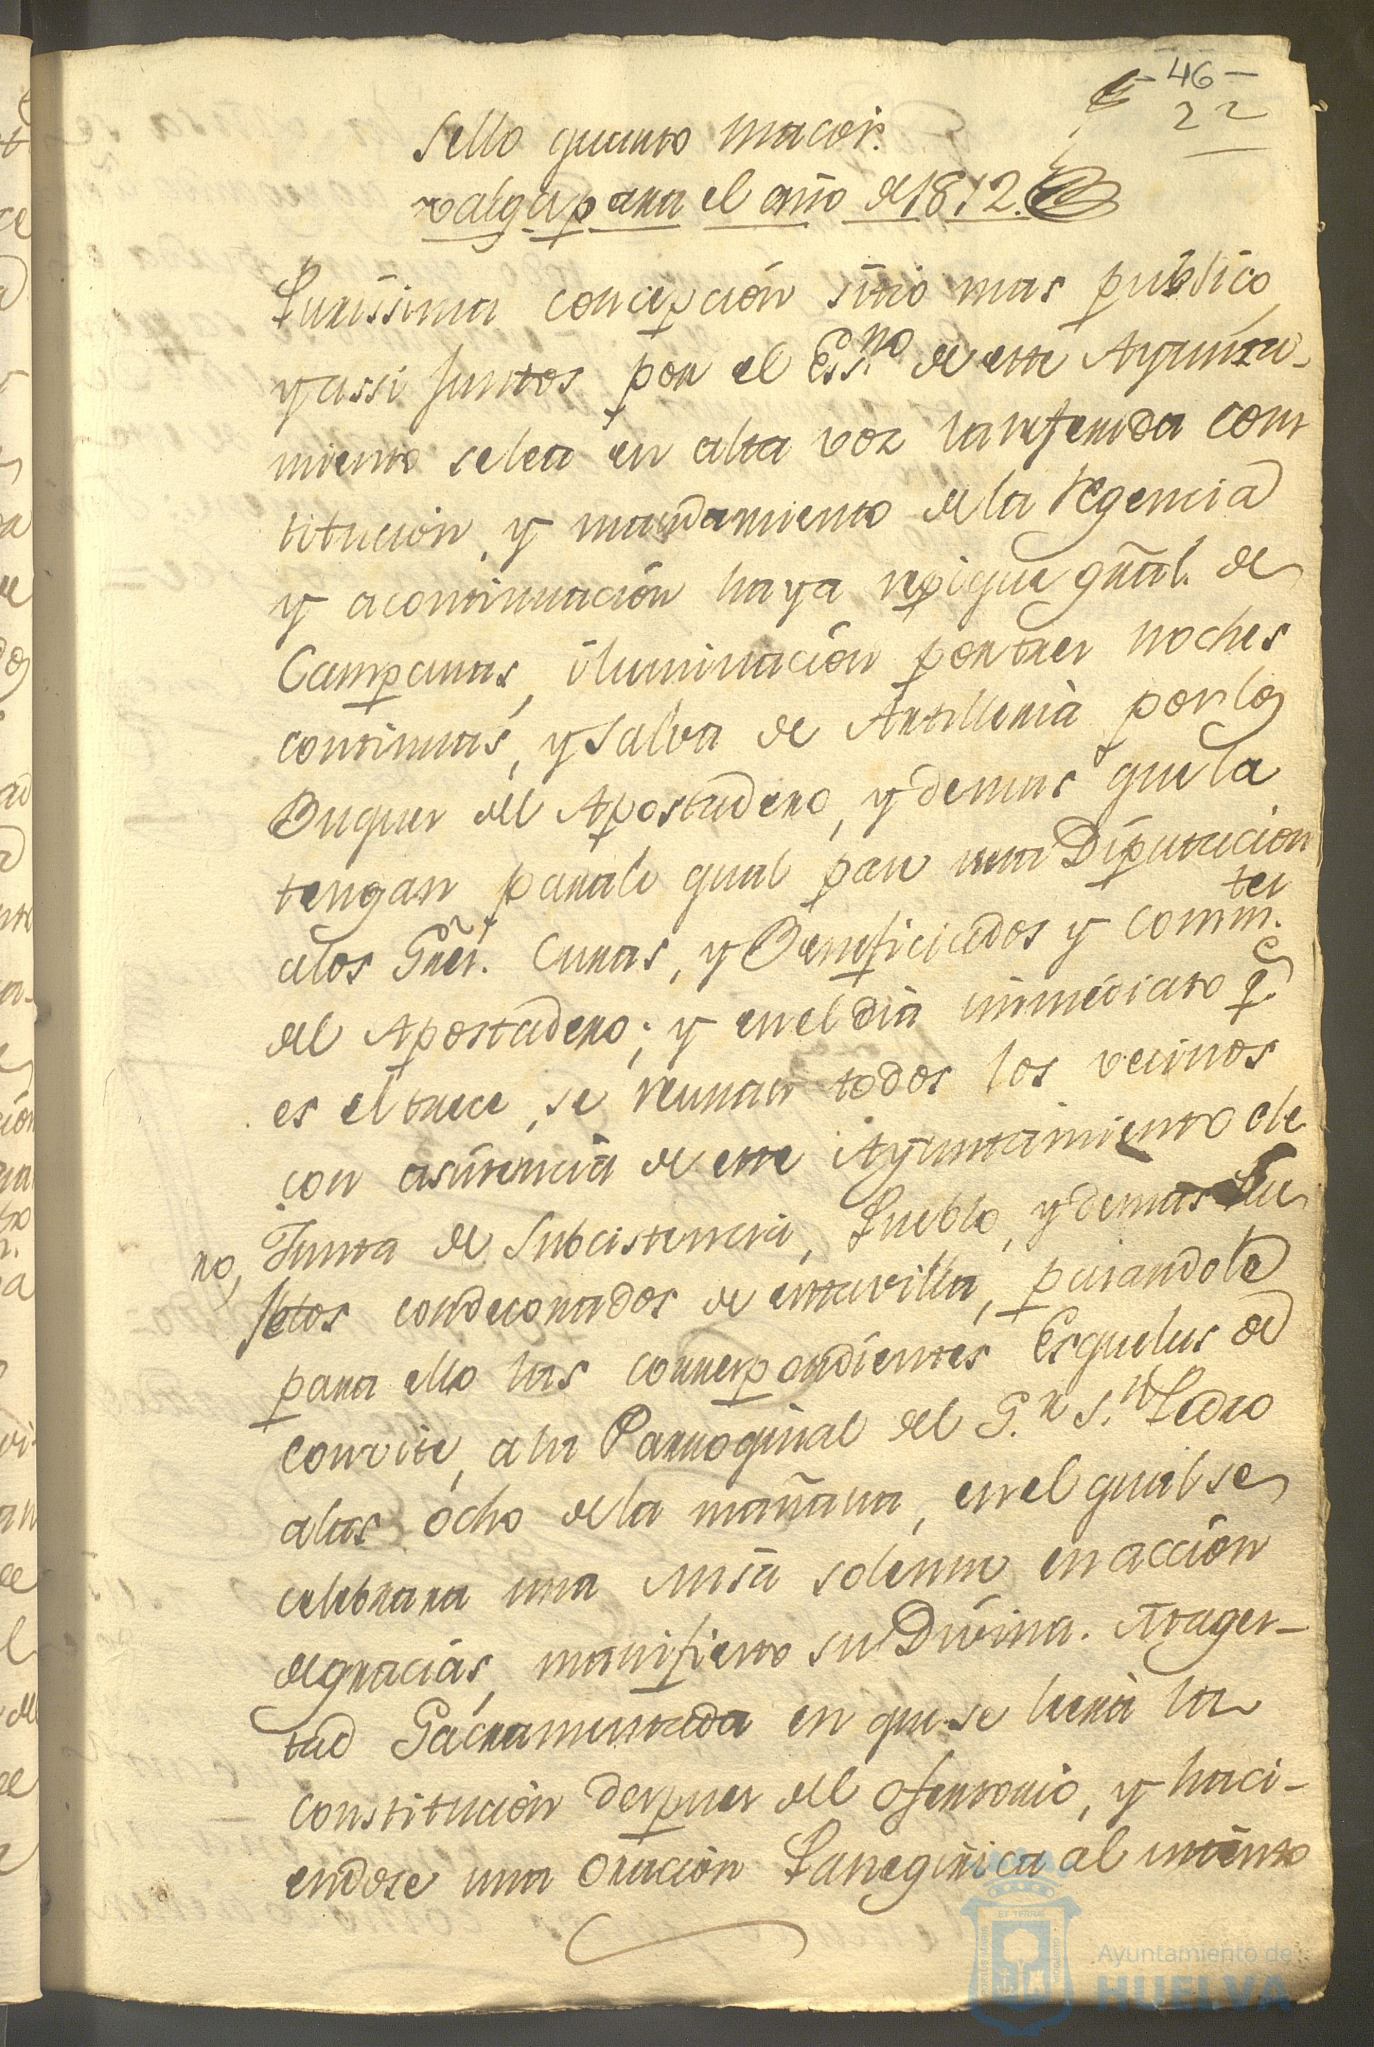 - 46 -
22
Sello quarto maior.
valga para el año de 1812.
Purissima concepción sitio mas público,
y assi juntos por el Ess.no de este Ayunta-
miento se lea en alta voz la referida Cons
titución, y mandamiento de la Regencia
y acontinuación haya repique gñal. de
Campanas, iluminación por tres noches
continuas, y salva de Artilleria por los
Buques del Apostadero, y demas que la
tengan para lo qual pase una Diputacion
a los Sres. Curas, y Beneficiados y Comm.tes
del Apostadero; y en el dia inmediato q.e
es el trece, se reunan todos los vecinos
con asistencia de este Ayuntamiento de
Junta de Subcistencia, Pueblo, y demas Sue
no, jetos condecorados de esta villa, pasandole
para ello las correspondientes Esquelas de
convite, a la Parroquial del S.r S.n Pedro
a las ócho de la mañana, en el qual se
celebrara una Misa solemne en acción
de gracias, manifiesto su Divina. Mages-
tad Sacramentada en que se leerá la
constitución despues del ofertorio, y haci-
endose una oración Panegirica al intento
Ayuntamiento de
HUELVA